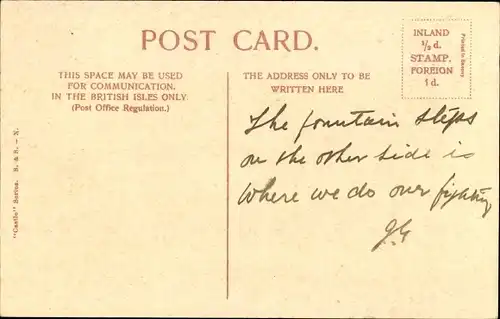 POST CARD.
THIS SPACE MAY BE USED
FOR COMMUNICATION.
IN THE BRITISH ISLES ONLY.
(Post Office Regulation.)
THE ADDRESS ONLY TO BE
WRITTEN HERE
INLAND
½ d.
STAMP.
FOREIGN
1 d.
Printed in Saxony
The fountain steps
on the other side is
where we do our fighting
JG
"Castle" Series. B. & R. — N.